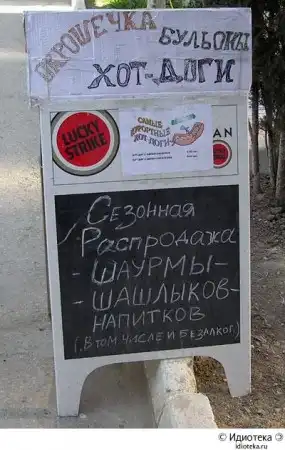 ОКРОШЕЧКА
БУЛЬОНЫ
ХОТ-ДОГИ
LUCKY
STRIKE
САМЫЕ
КУРОРТНЫЕ
ХОТ-ДОГИ
AN
Сезонная
Распродажа
-ШАУРМЫ-
-ШАШЛЫКОВ-
НАПИТКОВ
(В ТОМ ЧИСЛЕ И БЕЗАЛКОГ.)
© Идиотека
idioteka.ru